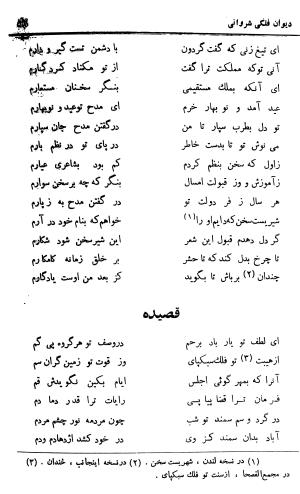 دیوان فلکی شروانی
ای تیغ زنی که گفت گردون با دشمن تست گیر و دارم
آنی توکه مملکت ترا گفت از تو مکناد کردگارم
ای آنکه بملک مستقیمی بنگر سخنان مستعارم
عید آمد و نو بهار خرم ای مدح توعید و نوبهارم
تو دل بطرب سپار تا من درگفتن مدح جان سپارم
می نوش تو تا بدست خاطر در پای تو در نظم بارم
زاول که سخن بنظم کردم کم بود بشاعری عیارم
زآموزش و وز قبولت امسال بنگر که چه برسخن سوارم
هر سال ز فر دولت تو در گفتن مدح به ز پارم
شیریست سخن که دایم او را (۱) خواهم که بنام خود در آرم
گر دل دهدم قبول این شعر این شیرسخن شود شکارم
تا چرخ بدل کند که تا حشر بر خلق زمانه کامکارم
چندان (۲) برباش تا بگوید کز بعد من اوست یادگارم
قصیده
ای لطف تو یار باد برحم دروصف تو هرگروه پی گم
ازهیبت (۳) تو فلک سبکپای وز قوت تو زمین گران سم
آنرا که بمهر گوئی اجلس ایام بکین نگویدش قم
فرمان ترا قضا پیا پی رایات ترا قدر دما دم
در گرد و سم سمند تو شب چون مردمه نور چشم مردم
آباد بدان سمند کز وی در خود کشد اژدهادم ودم
(۱) در نسخه لندن ، شهریست سخن . (۲) درنسخه اینجانب ، خندان . (۳)
در مجمع الفصحا ، ازسنت تو فلک سبکپای